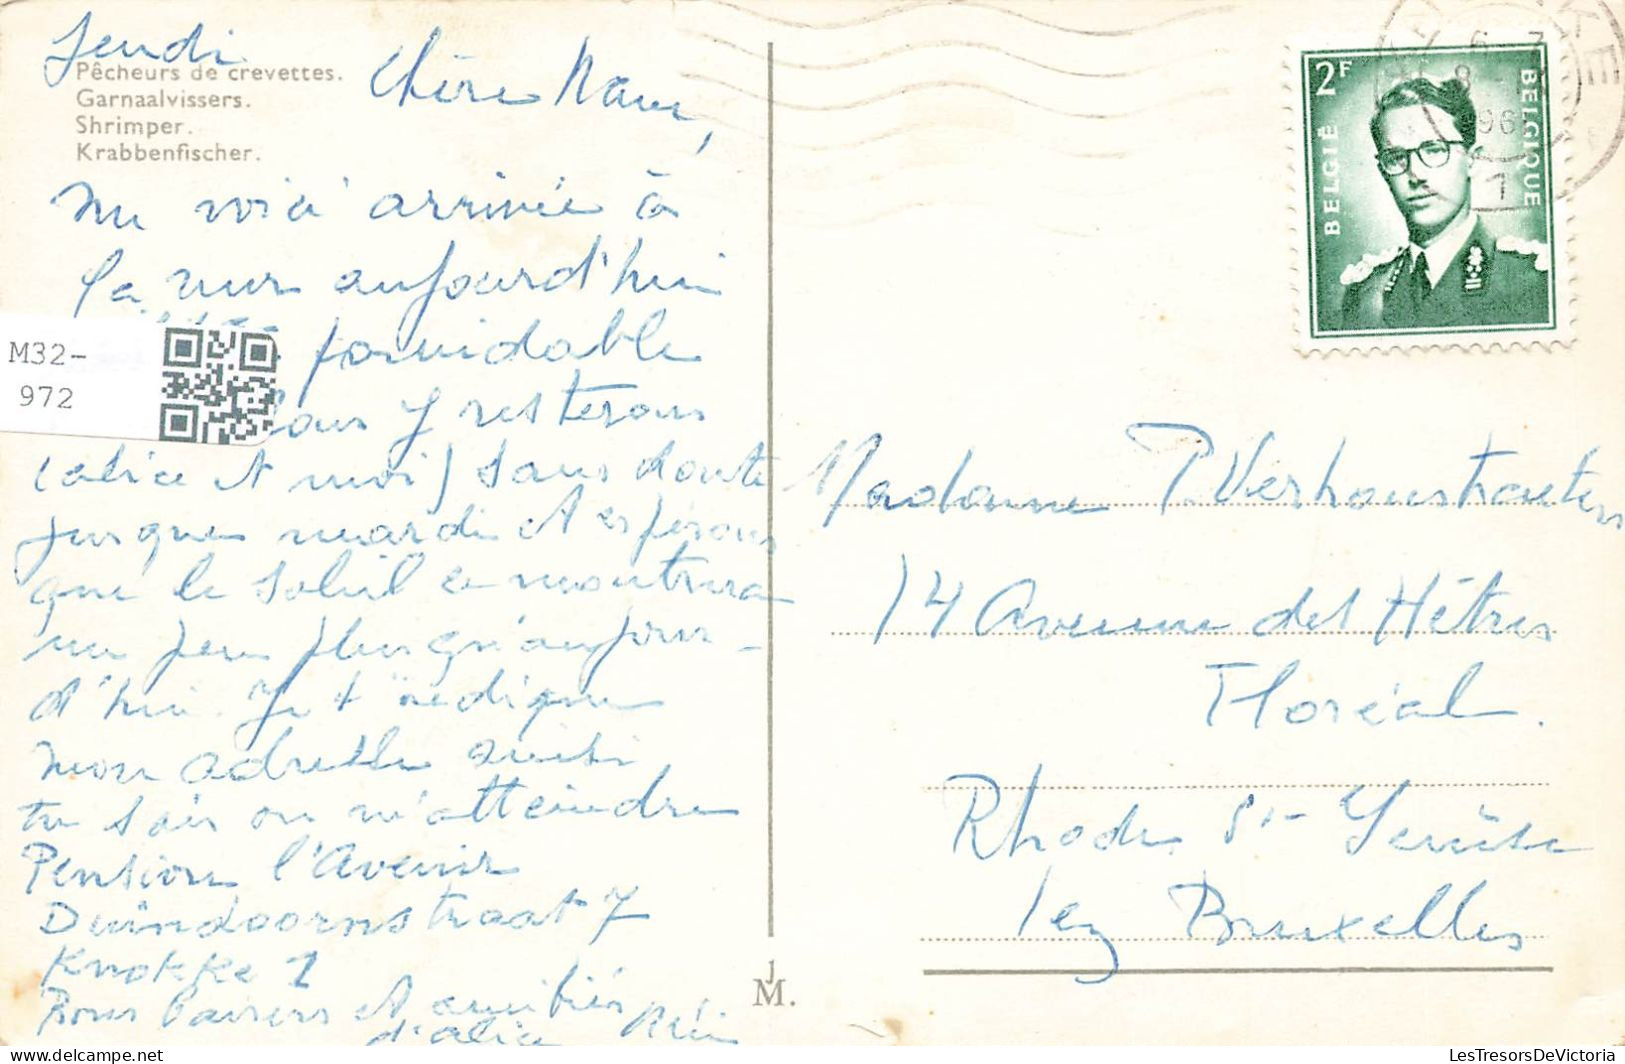 Jeudi
Pêcheurs de crevettes.
Garnaalvissers.
Shrimper.
Krabbenfischer.
Chère
me voici arrivée à
la mer aujourd'hui
formidable
nous y resterons
(alice et moi) sans doute
jusque mardi et espérons
que le soleil se montrera
un peu plus qu'aujour-
d'hui. Je t'indique
mon adresse ainsi
tu sais ou m'atteindre
Pension l'Avenir
Duindoornstraat 7
Knokke 1
Bons baisers et amitiés
d'alice
Madame P. Verhoustraeten
14 Avenue des Hêtres
Floréal.
Rhode St-Genèse
lez Bruxelles
2F
BELGIË
BELGIQUE
M32-
972
J
M.
LesTresorsDeVictoria